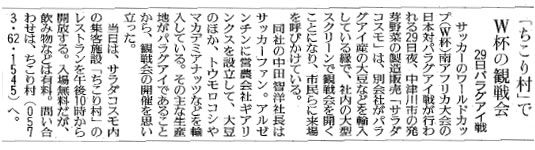 「ちこり村」で
W杯の観戦会
29日パラグアイ戦
サッカーのワールドカッ
プ(W杯)南アフリカ大会の
日本対パラグアイ戦が行わ
れる29日夜、中津川市の発
芽野菜の製造販売「サラダ
コスモ」は、別会社がパラ
グアイ産の大豆などを輸入
している縁で、社内の大型
スクリーンで観戦会を開く
ことになり、市民らに来場
を呼びかけている。
同社の中田智洋社長は
サッカーファン。アルゼ
ンチンに営農会社ギアリ
ンクスを設立して、大豆
のほか、トウモロコシや
マカデミアナッツなどを輸
入している。その主な生産
地がパラグアイであること
から、観戦会の開催を思い
立った。
当日は、サラダコスモ内
の集客施設「ちこり村」の
レストランを午後10時から
開放する。入場無料だが、
飲み物などは有料。問い合
わせは、ちこり村(057
3・62・1545)へ。